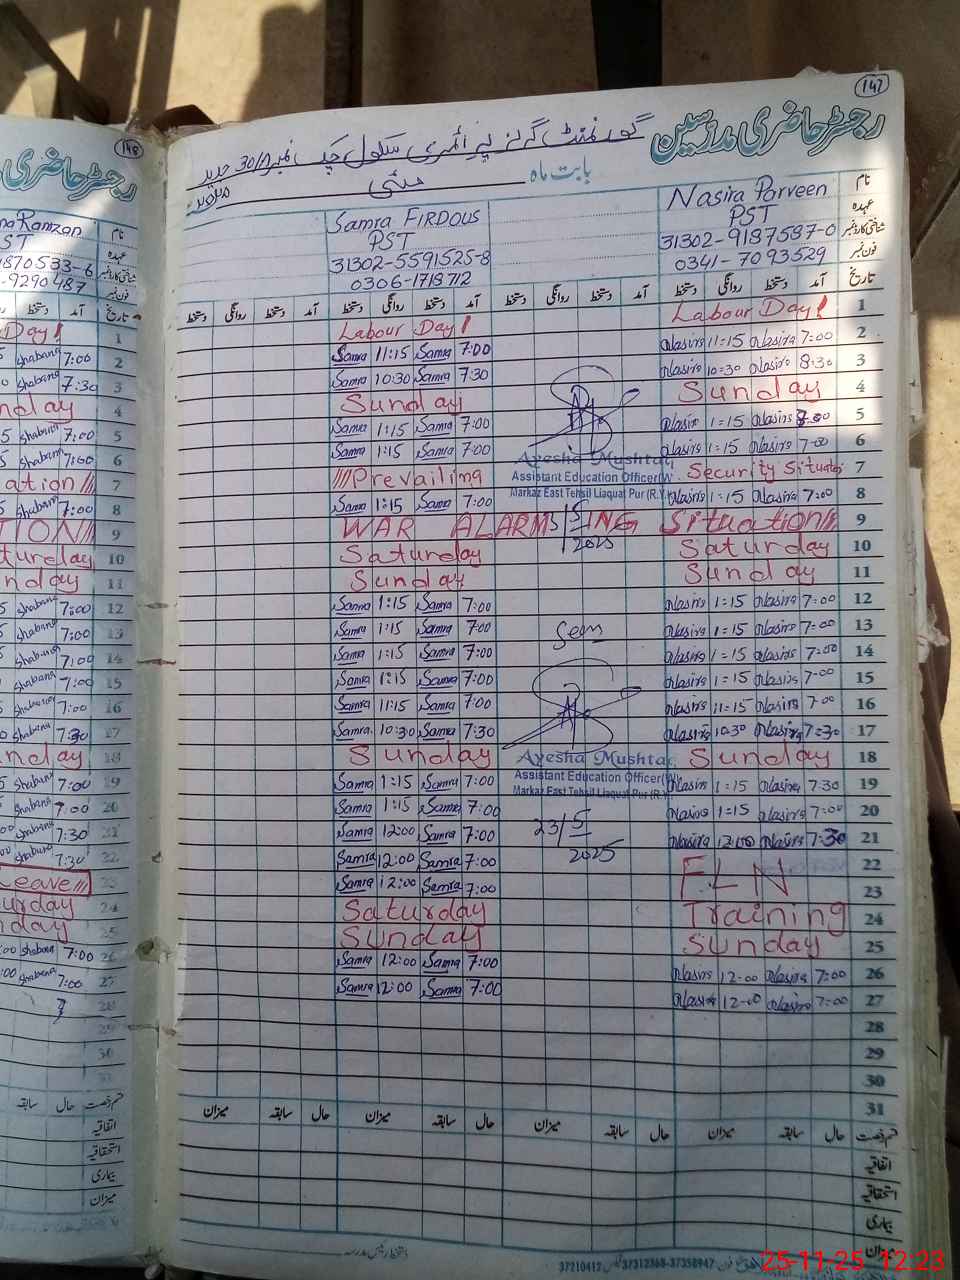 147
رجسٹر حاضری مدرسین
گورنمنٹ گرلز پرائمری سکول چک نمبر 30/A جدید
بابت ماہ مئی
نام Nasira Parveen Samra FIRDOUS
عہدہ PST PST
شناختی کارڈ نمبر 31302-9187587-0 31302-5591525-8
فون نمبر 0341-7093529 0306-1718712
تاریخ آمد دستخط روانگی دستخط آمد دستخط روانگی دستخط آمد دستخط روانگی دستخط آمد دستخط روانگی دستخط
Labour Day! Labour Day! 1
Samra 11:15 Samra 7:00 Nasira 11:15 Nasira 7:00 2
Samra 10:30 Samra 7:30 Nasira 10=30 Nasira 8:30 3
Sunday Sunday 4
Samra 1:15 Samra 7:00 Nasira 1=15 Nasira 5
Samra 1:15 Samra 7:00 Nasira 1=15 Nasira 7=00 6
Ayesha Mushtaq
Prevailing Security Situation 7
Assistant Education Officer(W
Markaz East Tehsil Liaquat Pur (R.Y.
Samra 1:15 Samra 7:00 Nasira 1=15 Nasira 7:00 8
WAR ALARMSING Situation 9
5
2025
Saturday Saturday 10
Sunday Sunday 11
Samra 1:15 Samra 7:00 Nasira 1=15 Nasira 7=00 12
Samra 1:15 Samra 7:00 Seen Nasira 1=15 Nasira 7=00 13
Samra 1:15 Samra 7:00 Nasira 1=15 Nasira 7:00 14
Samra 1:15 Samra 7:00 Nasira 1=15 Nasira 7=00 15
Samra 11:15 Samra 7:00 Nasira 11=15 Nasira 7=00 16
Samra 10:30 Samra 7:30 Nasira 10=30 Nasira 7=30 17
Sunday Sunday 18
Ayesha Mushtaq
Assistant Education Officer(W
Markaz East Tehsil Liaquat Pur (R.Y.
Samra 1:15 Samra 7:00 Nasira 1:15 Nasira 7:30 19
Samra 1:15 Samra 7:00 Nasira 1:15 Nasira 7:00 20
23/5
2025
Samra 12:00 Samra 7:00 Nasira 12:00 Nasira 7:30 21
Samra 12:00 Samra 7:00 FLN 22
Samra 12:00 Samra 7:00 23
Saturday Training 24
Sunday Sunday 25
Samra 12:00 Samra 7:00 Nasira 12=00 Nasira 7:00 26
Samra 12:00 Samra 7:00 Nasira 12=00 Nasira 7=00 27
28
29
30
31
قسم رخصت حال سابقہ میزان حال سابقہ میزان حال سابقہ میزان حال سابقہ میزان
اتفاقیہ
استحقاقیہ
بیماری
میزان
دستخط رئیس مدرسہ
37210412 37312368-37358947
148
رجسٹر حاضری
نام Ramzan
عہدہ
شناختی کارڈ نمبر 870533-6
فون نمبر -9290487
تاریخ آمد دستخط
Day! 1
Shabana 7:00 2
7:30 3
nday 4
Shabana 7:00 5
Shabana 7:00 6
ation 7
Shabana 7:00 8
TION 9
turday 10
nday 11
Shabana 7:00 12
Shabana 7:00 13
Shabana 7:00 14
Shabana 7:00 15
Shabana 7:00 16
Shabana 7:30 17
nday 18
Shabana 7:00 19
Shabana 7:00 20
Shabana 7:30 21
Shabana 7:30 22
Leave 23
urday 24
nday 25
Shabana 7:00 26
Shabana 7:00 27
28
29
30
قسم رخصت حال سابقہ
اتفاقیہ
استحقاقیہ
بیماری
میزان
25-11-25 12:23